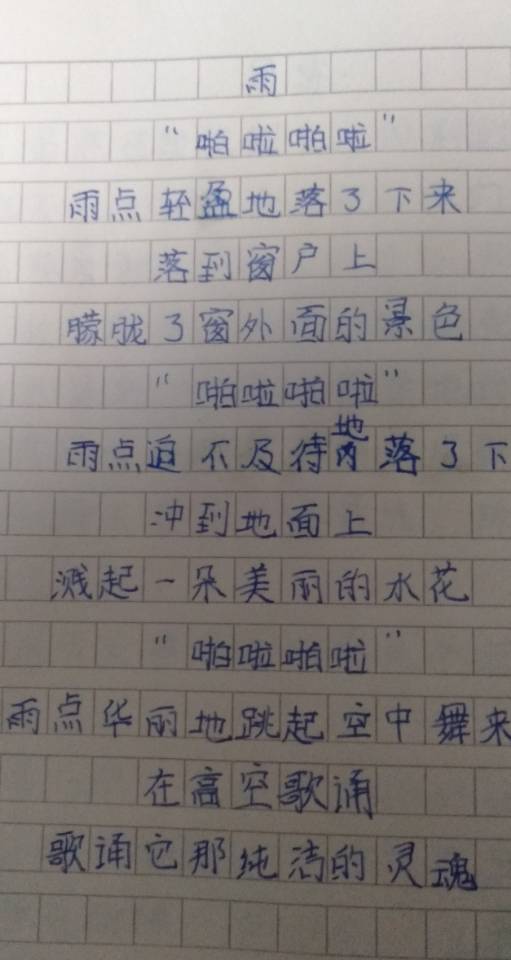 雨
“啪啦啪啦”
雨点轻盈地落了下来
落到窗户上
朦胧了窗外面的景色
“啪啦啪啦”
雨点迫不及待地落了下
冲到地面上
溅起一朵美丽的水花
“啪啦啪啦”
雨点华丽地跳起空中舞来
在高空歌诵
歌诵它那纯洁的灵魂